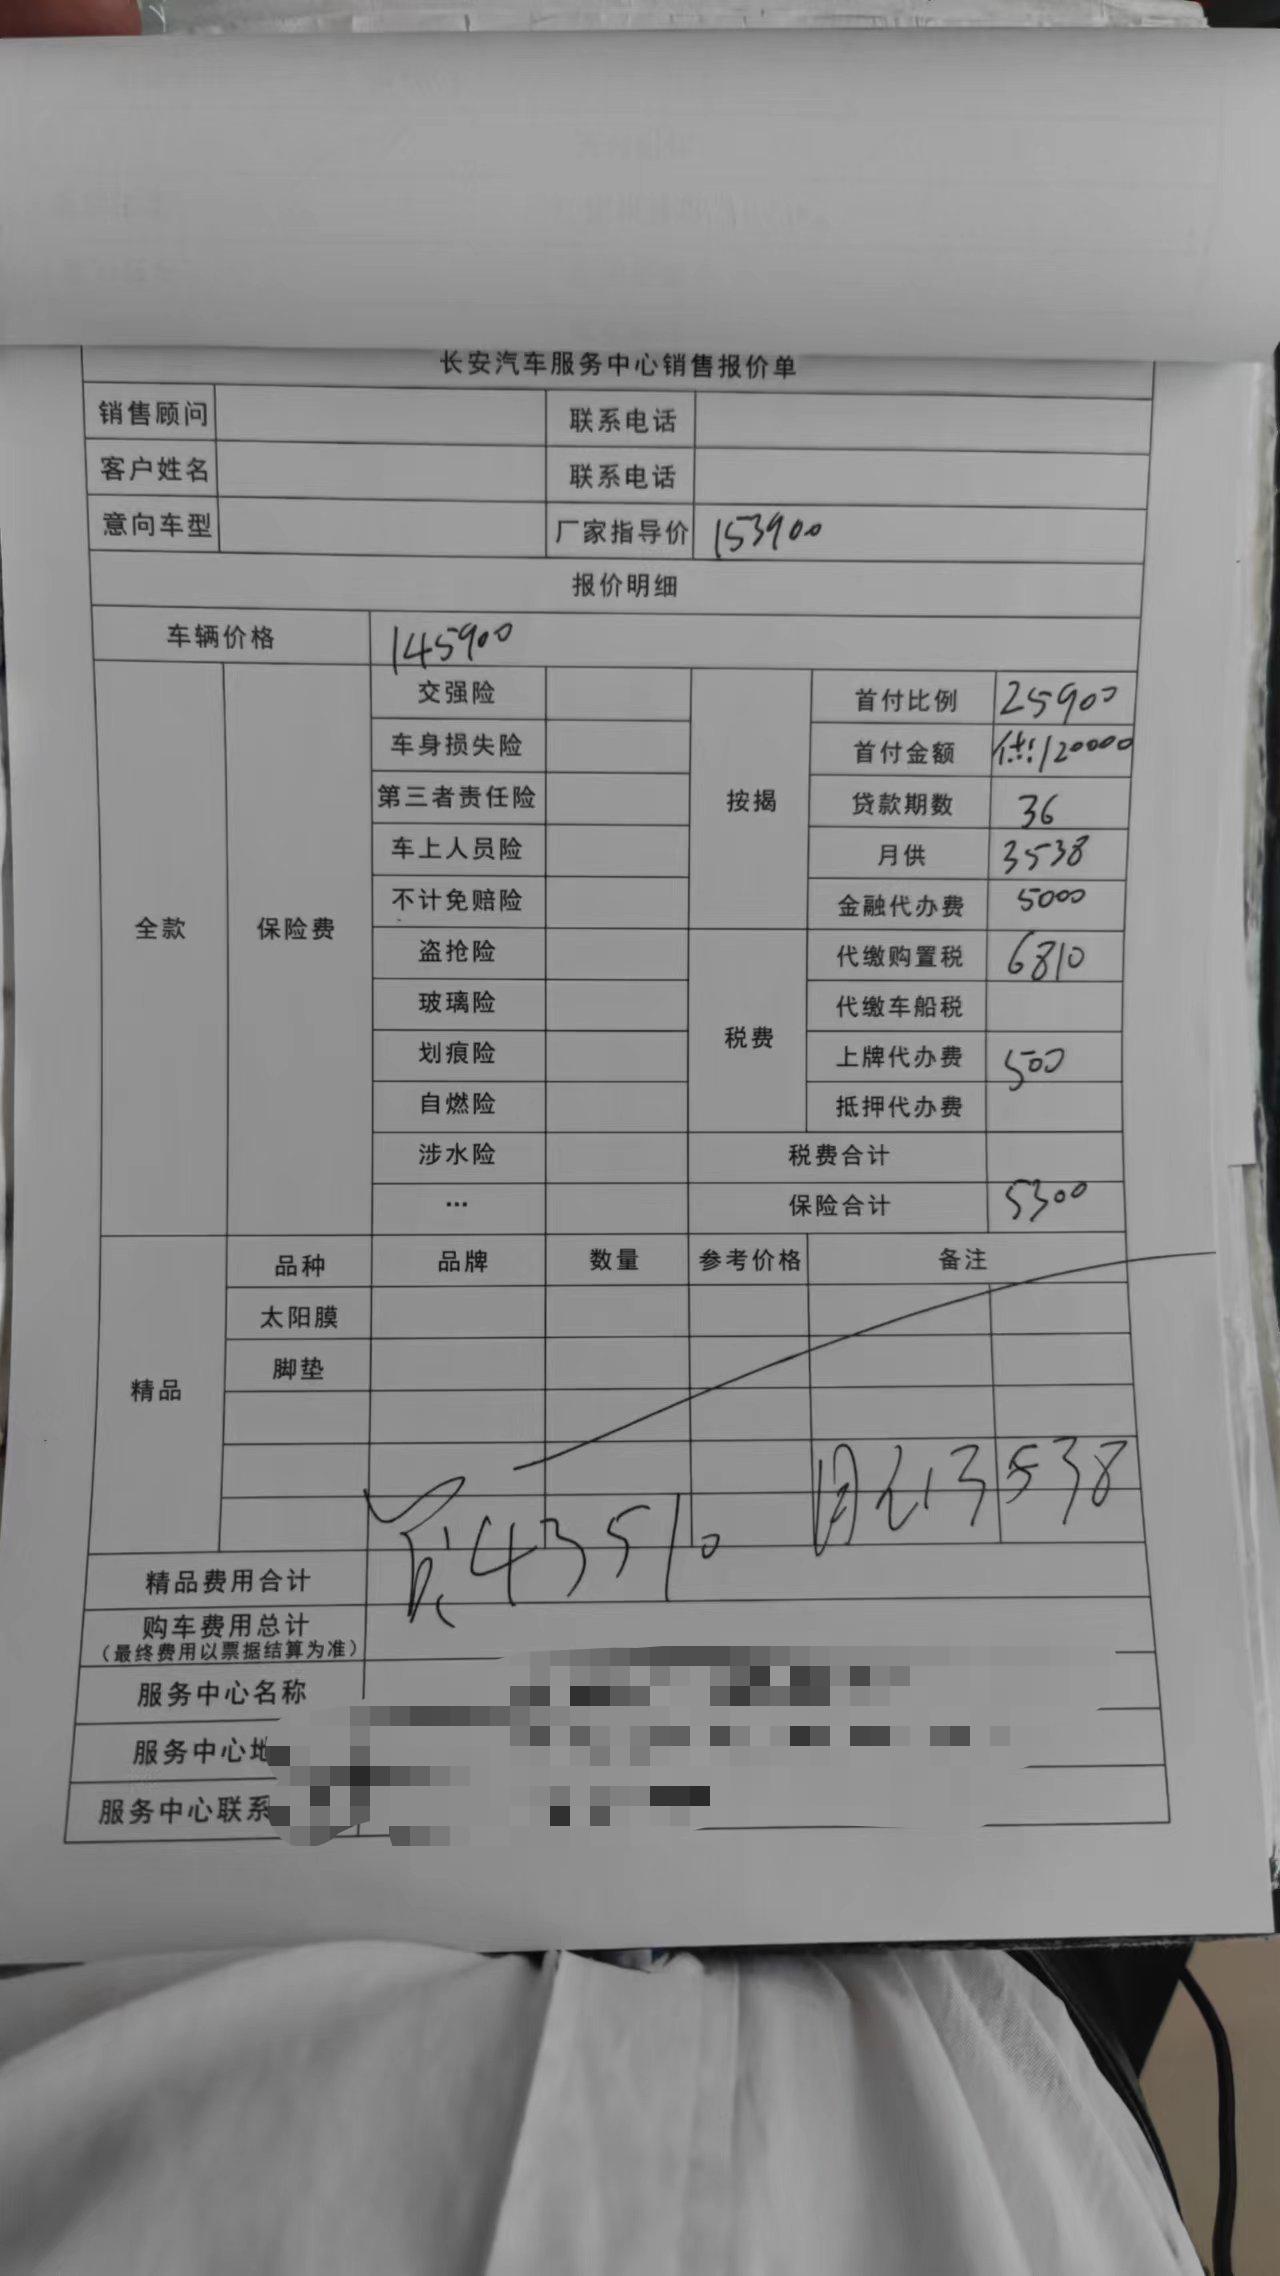 长安汽车服务中心销售报价单
销售顾问 联系电话
客户姓名 联系电话
意向车型 厂家指导价 153900
报价明细
车辆价格 145900
全款 保险费 交强险 按揭 首付比例 25900
车身损失险 首付金额 120000
第三者责任险 贷款期数 36
车上人员险 月供 3538
不计免赔险 金融代办费 5000
盗抢险 税费 代缴购置税 6810
玻璃险 代缴车船税
划痕险 上牌代办费 500
自燃险 抵押代办费
涉水险 税费合计
… 保险合计 5300
精品 品种 品牌 数量 参考价格 备注
太阳膜
脚垫
月 3538
43510
精品费用合计
购车费用总计
（最终费用以票据结算为准）
服务中心名称
服务中心地
服务中心联系